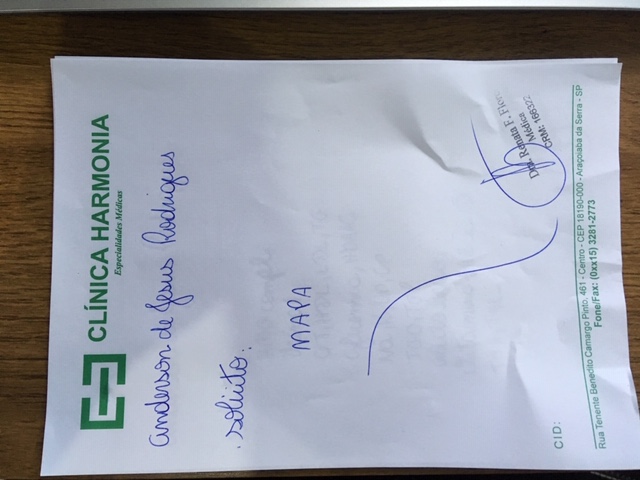 CLÍNICA HARMONIA
Especialidades Médicas
anderson de Jesus Rodrigues
. solicito:
MAPA
Dra. Renata F. Flor
Médica
CRM: 166322
CID:
Rua Tenente Benedito Camargo Pinto, 461 - Centro - CEP 18190-000 - Araçoiaba da Serra - SP
Fone/Fax: (0xx15) 3281-2773